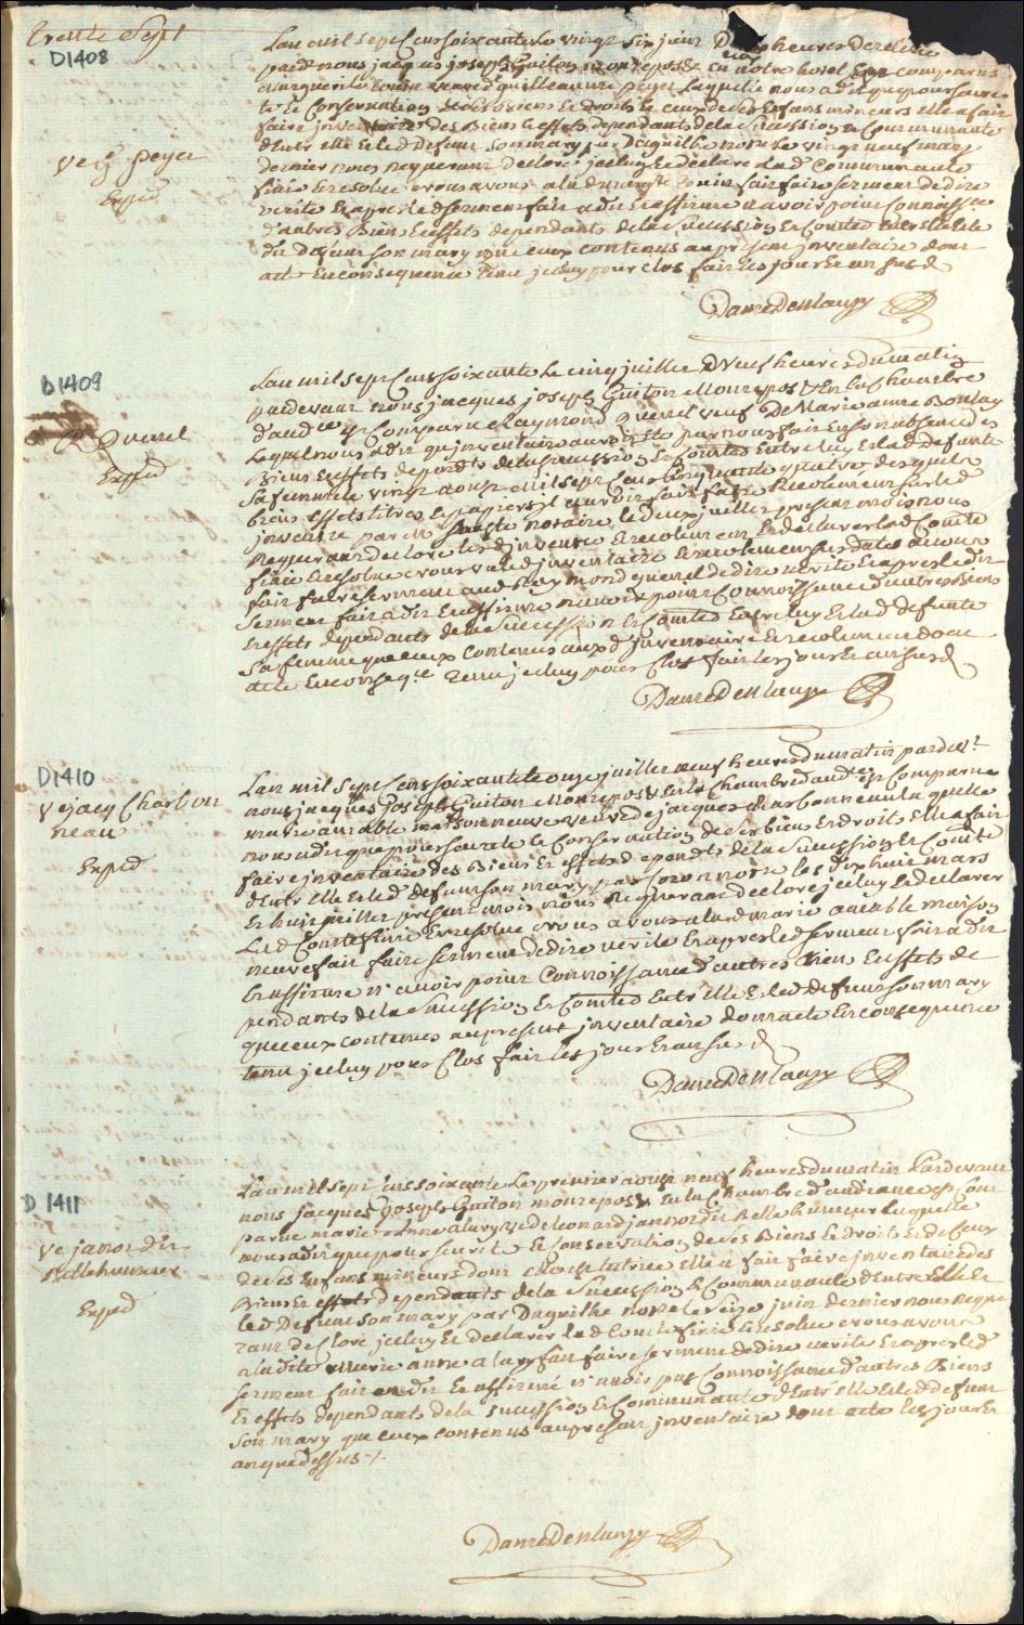 Trente Sept
D1408
Lan mil Sept Cens soixante Le vingt six juin heures de relevée
pardt nous jacques joseph Guiton monrepos en notre hotel est comparue
marguerite veuve de guilleaume peyer Laquelle nous a dit que pour seure
te Et Conservation de ses biens Et droits Et ceux de ses Enfans mineurs Elle a fait
faire jnventaire des Biens Et effets dependants de la Succession Et Communauté
d'Entre elle Et led defunt son mary par Duguilhe nore Le vingt neuf may
dernier nous requerant declore jceluy Et declarer lad Communauté
finie Et resolue
ve g peyer
Exped
verité Et apres led serment fait a dit Et affirmé n avoir point connoissce
d'autres Biens Et effets dependants de la Succession Et Comté d'entre Elle Et le
dit defunt son mary que ceux contenus au present jnventaire dont
acte Enconsequence tenu jceluy pour clos fait les jour Et an susd
DaneDeMlauzy
D1409
R Quenel
Exped
Lan mil sept Cens soixante Le cinq juillet Neuf heures du matin
pardevant nous jacques joseph Guiton Monrepos En la Chambre
d'audce est Comparu Raymond Quenel veuf De Marie anne Boulay
Lequel nous a dit qu jnventaire auroit Eté par nous fait En son absence des
Biens Et effets dependts de la succession Et Comté d'Entre luy Et lad defunte
sa femme Le vingt aoust Mil sept Cens Cinquante quatre desquels
biens effets titres Et papiers il auroit fait faire Recolement sur led
jnventre par me notaire le deux juillet present mois nous
Requerant de clore lesd jnventre Et recolement Et declarer lad Comté
finie Et resolue
fait faire serment aud Raymond quenel de dire verité Et apres led
serment fait a dit Et affirmé n avoir point Connoissance d'autres Biens
Et effets dependants de la Succession Et Comté d'Entre luy Et lad defunte
sa femme que ceux Contenus aux d jnventaire Et recolement dont
acte Enconseqce tenu jceluy pour Clos fait les jour Et an susd
DaneDeMlauzy
D1410
ve jacq Charbon
neau
Exped
Lan mil Sept Cens soixante le onze juillet neuf heures du matin pardevt
nous jacques joseph Guiton Monrepos En la Chambre d'audce est Comparue
marie amable maisonneuve veuve de jacques charbonneau laquelle
nous a dit que pour seureté Et Conservation de ses biens Et droits elle a fait
faire jnventaire des Biens Et effets dependts de la Succession Et Comté
d'Entre Elle Et led defunt son mary par nore les dix huit mars
Et huit juillet present mois nous Requerant declore jceluy Et declarer
Lad Comté finie Et resolue a lad marie amable maison
neuve fait faire serment de dire verité Et apres led serment fait a dit
Et affirmé n'avoir point Connoissance d'autres Biens Et effets de
pendants de la Succession Et Comté d'Entr'Elle Et led defunt son mary
que ceux contenus au present jnventaire dont acte Enconsequence
tenu jceluy pour Clos fait les jour Et an susd
DaneDeMlauzy
D 1411
ve janot dit
Bellehumeur
Exped
Lan mil sept Cens soixante Le premier aoust neuf heures du matin Pardevant
nous jacques joseph Guiton monrepos En la Chambre d'audiance est Com
parue marie Anne alary ve de leonard janot dit Bellehumeur laquelle
nous a dit que pour seureté Et Conservation de ses Biens Et droits Et de Ceux
de ses Enfans mineurs dont Elle est tutrice elle a fait faire jnventaire des
Biens Et effets dependants de la Succession Et Communauté d'Entre Elle Et
led Defunt son mary par Duguilhe nore le seize juin dernier nous reque
rant de Clore jceluy Et declarer lad Comté finie Et resolue
a ladite marie anne alary fait faire serment de dire verité Et apres led
serment fait a dit Et affirmé n'avoir pas Connoissance d'autres Biens
Et effets dependants de la succession Et Communauté d'Entr Elle Et led defunt
son mary que ceux contenus au present jnventaire dont acte les jour Et
an que dessus ./.
DaneDeMlauzy